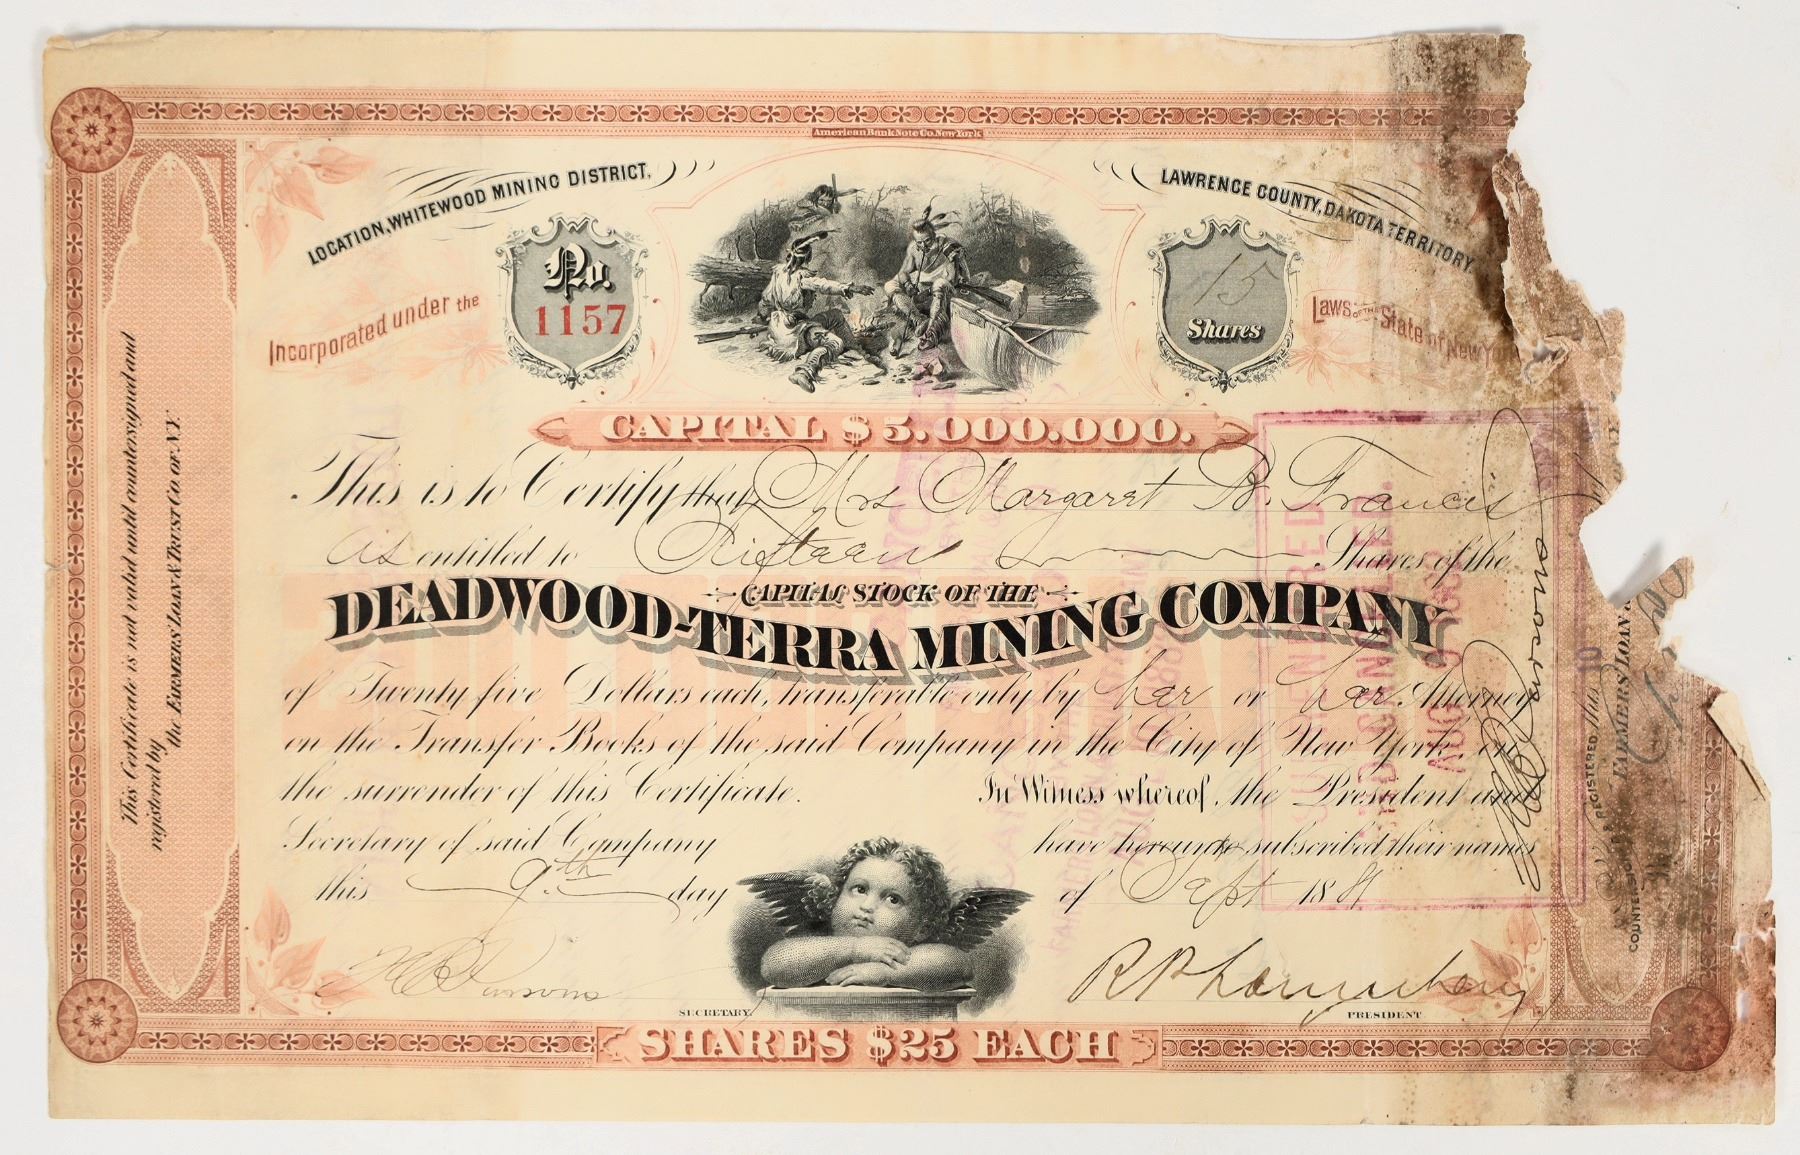 American Bank Note Co. New York
LOCATION, WHITEWOOD MINING DISTRICT,
LAWRENCE COUNTY, DAKOTA TERRITORY.
Incorporated under the
No.
1157
15
Shares
Laws OF THE State of New York
CAPITAL $5.000.000.
This is to Certify that Mrs Margaret B. Francis
is entitled to Fifteen Shares of the
CAPITAL STOCK OF THE
DEADWOOD-TERRA MINING COMPANY
of Twenty five Dollars each, transferable only by her or her Attorney
on the Transfer Books of the said Company in the City of New York, on
the surrender of this Certificate. In Witness whereof, the President and
Secretary of said Company have hereunto subscribed their names
this 9th day of Sept 1881
SECRETARY.
PRESIDENT
SHARES $25 EACH
This Certificate is not valid until countersigned and
registered by
the FARMERS LOAN & TRUST CO OF N.Y.
SURRENDERED
AND CANCELLED.
AUG
COUNTERSIGNED & REGISTERED, this 10
FARMERS LOAN &